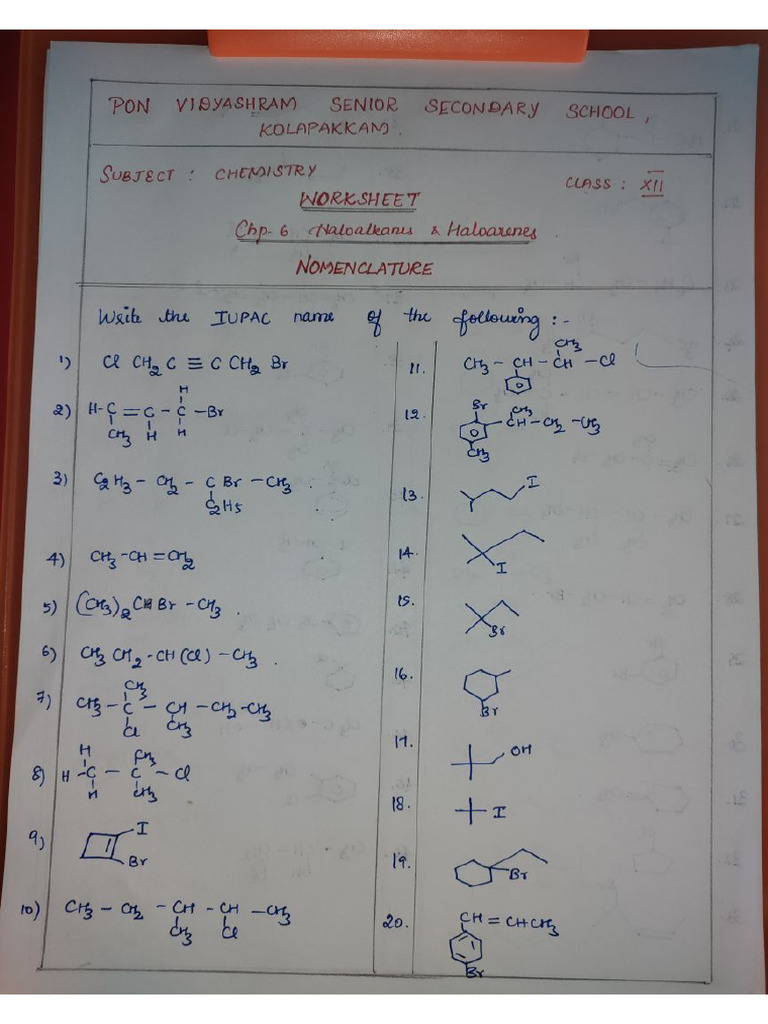 PON VIDYASHRAM SENIOR SECONDARY SCHOOL,
KOLAPAKKAM.
SUBJECT : CHEMISTRY
CLASS : XII
WORKSHEET
Chp-6 Haloalkanes & Haloarenes.
NOMENCLATURE
Write the IUPAC name of the following :-
1) Cl CH2 C ≡ C CH2 Br
H
2) H-C = C - C - Br
CH3 H H
3) C2H3 - CH2 - C Br - CH3
C2H5
4) CH3-CH=CH2
5) (CH3)2 CBr - CH3.
6) CH3 CH2 - CH (Cl) - CH3.
CH3
7) CH3 - C - CH - CH2 - CH3
Cl CH3
H CH3
8) H - C - C - Cl
H CH3
9) I
Br
10) CH3 - CH2 - CH - CH - CH3
CH3 Cl
CH3
11. CH3 - CH - CH - Cl
Br CH3
12. CH - CH2 - CH3
CH3
13. I
14. I
15. Br
16. Br
17. OH
18. I
19. Br
20. CH = CHCH3
Br